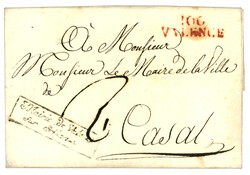 106
VALENCE
A Monsieur
Monsieur Le Maire de la Ville
de
Casal
2